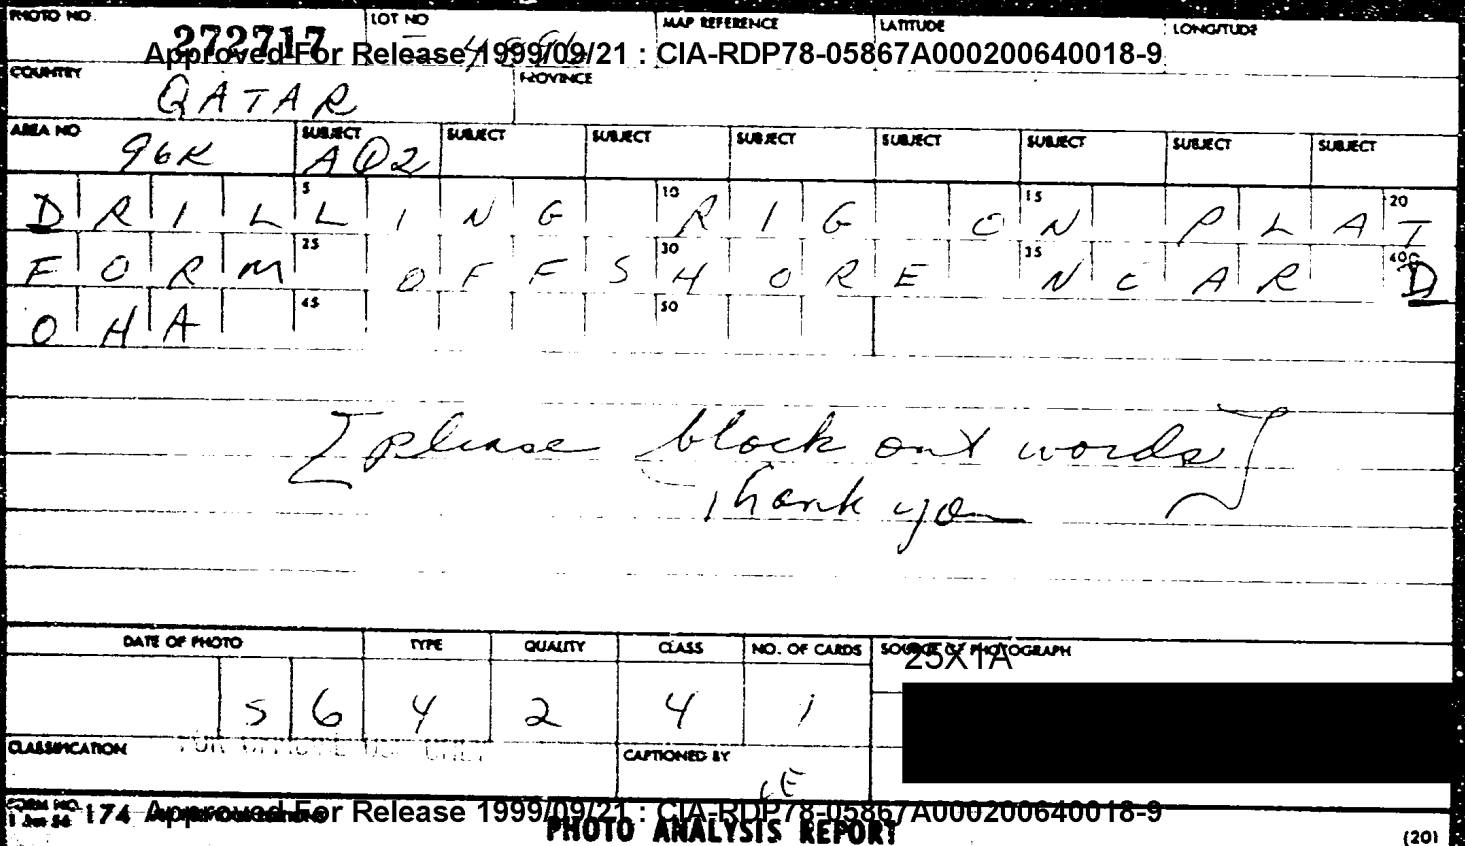 PHOTO NO. LOT NO MAP REFERENCE LATITUDE LONGITUDE
272717
Approved For Release 1999/09/21 : CIA-RDP78-05867A000200640018-9
COUNTRY PROVINCE
QATAR
AREA NO SUBJECT SUBJECT SUBJECT SUBJECT SUBJECT SUBJECT SUBJECT SUBJECT
96K AQ2
5 10 15 20
DRILLING RIG ON PLAT
25 30 35 40
FORM OFFSHORE NEAR D
45 50
OHA
[please block out words]
Thank you
DATE OF PHOTO TYPE QUALITY CLASS NO. OF CARDS SOURCE OF PHOTOGRAPH
25X1A
5 6 4 2 4 1
CLASSIFICATION FOR OFFICIAL USE ONLY CAPTIONED BY
CE
FORM NO. 174
1 Jun 56
Approved For Release 1999/09/21 : CIA-RDP78-05867A000200640018-9
PHOTO ANALYSIS REPORT
(20)